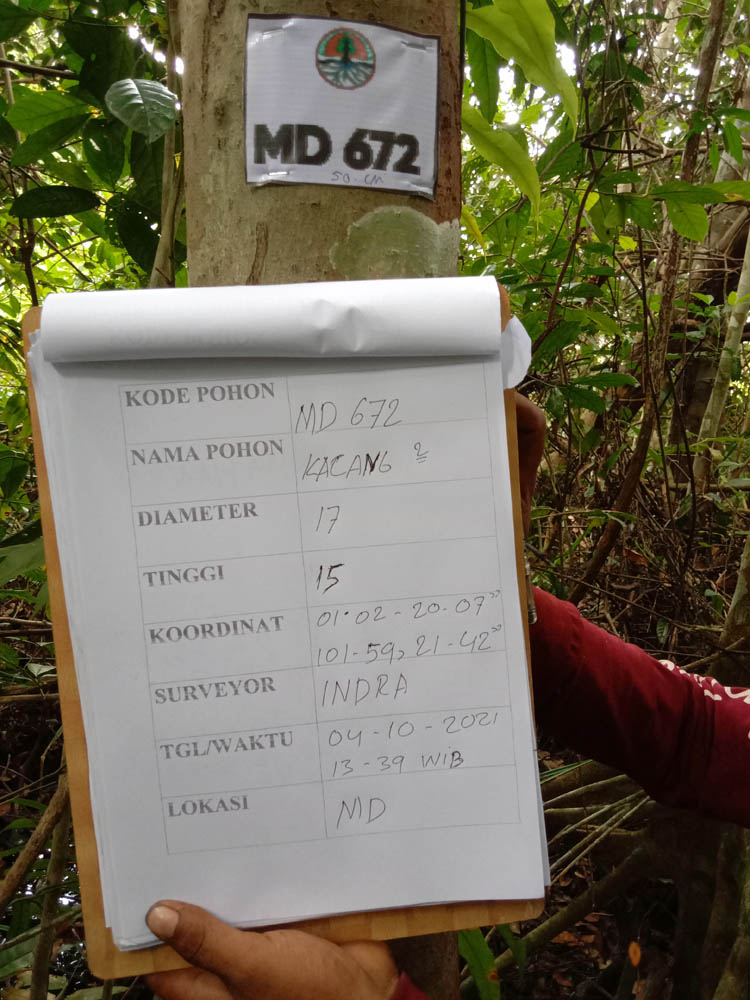 MD 672
50 CM
KODE POHON MD 672
NAMA POHON KACANG 2
DIAMETER 17
TINGGI 15
KOORDINAT 01•02-20.07"
101-59, 21-42"
SURVEYOR INDRA
TGL/WAKTU 04-10-2021
13-39 WIB
LOKASI MD